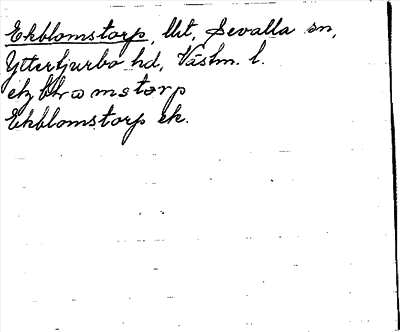 Ekblomstorp, lht, Sevalla sn,
Yttertjurbo hd, Västm. l.
Ekblomstorp ek.